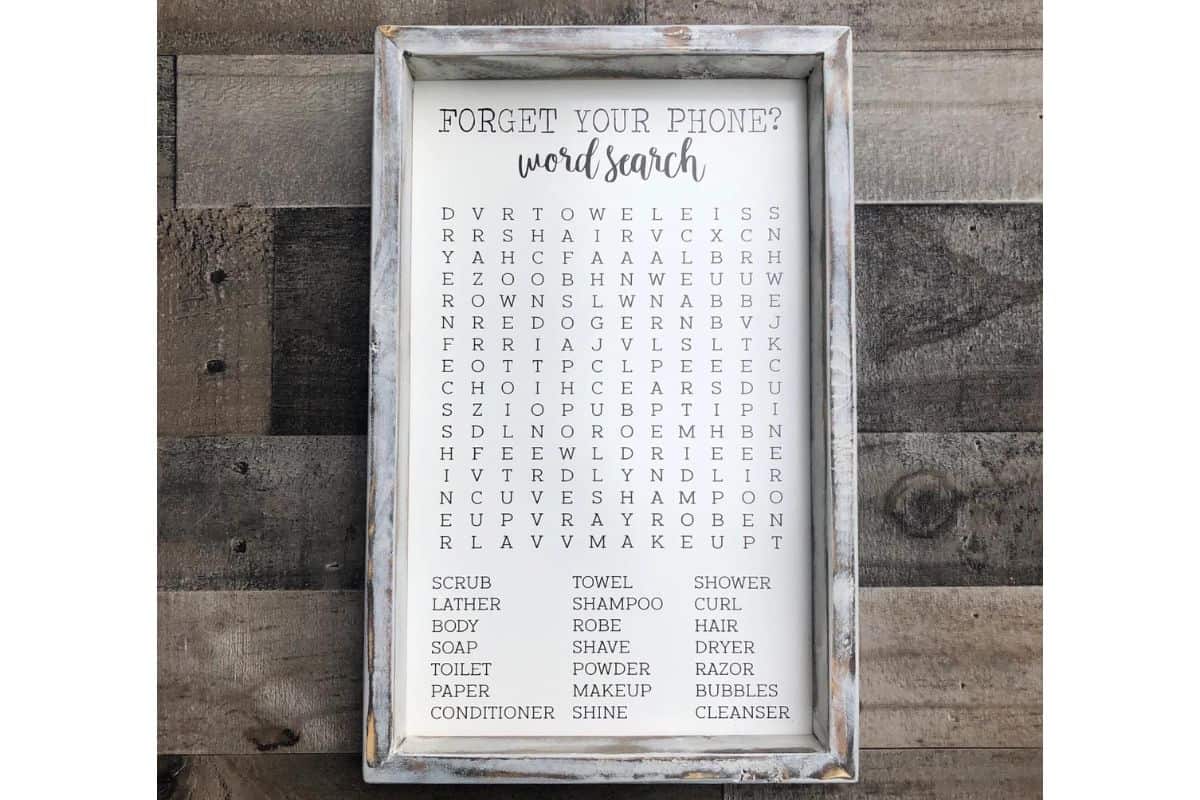 FORGET YOUR PHONE?
word search
D V R T O W E L E I S S
R R S H A I R V C X C N
Y A H C F A A A L B R H
E Z O O B H N W E U U W
R O W N S L W N A B B E
N R E D O G E R N B V J
F R R I A J V L S L T K
E O T T P C L P E E E C
C H O I H C E A R S D U
S Z I O P U B P T I P I
S D L N O R O E M H B N
H F E E W L D R I E E E
I V T R D L Y N D L I R
N C U V E S H A M P O O
E U P V R A Y R O B E N
R L A V V M A K E U P T
SCRUB TOWEL SHOWER
LATHER SHAMPOO CURL
BODY ROBE HAIR
SOAP SHAVE DRYER
TOILET POWDER RAZOR
PAPER MAKEUP BUBBLES
CONDITIONER SHINE CLEANSER